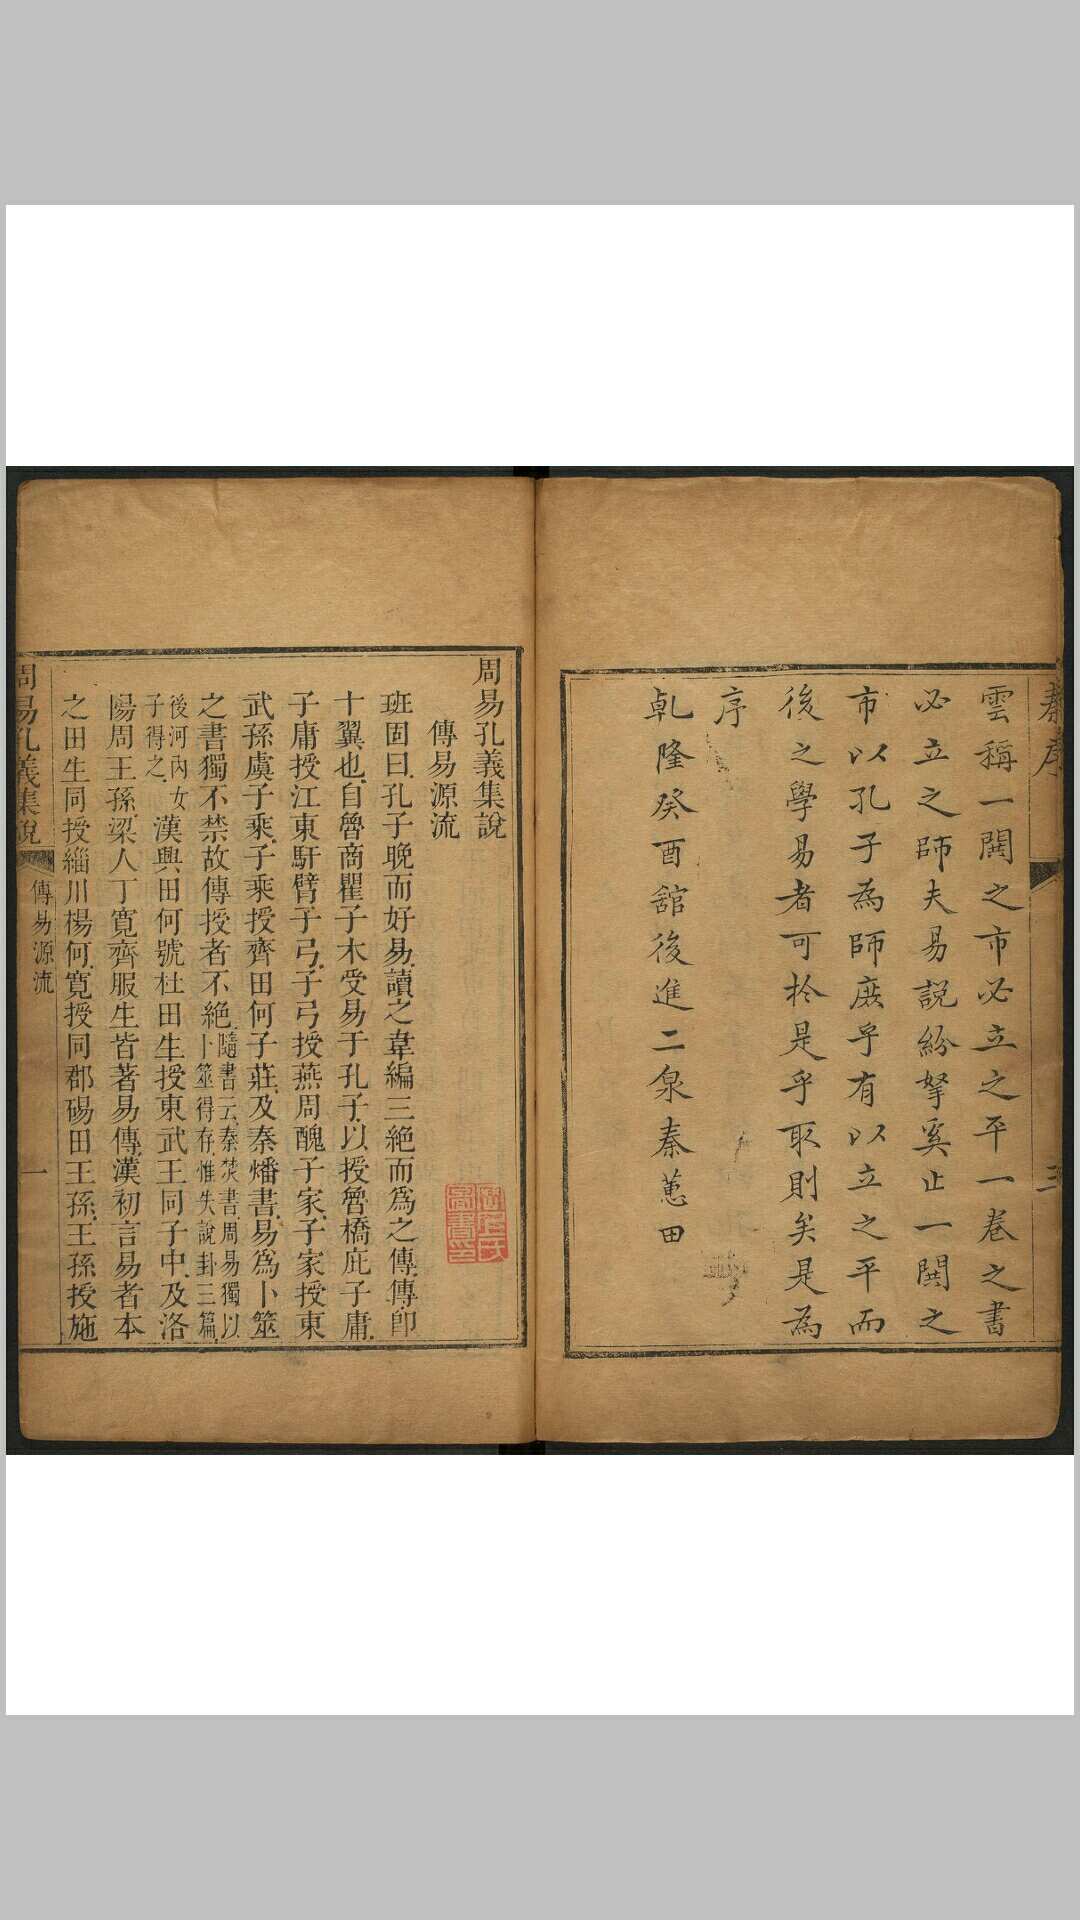 秦序
三
雲稱一閧之市必立之平一卷之書
必立之師夫易說紛拏奚止一閧之
市以孔子為師庶乎有以立之平而
後之學易者可於是乎取則矣是為
序
乹隆癸酉舘後進二泉秦蕙田
周易孔義集說
傳易源流
班固曰孔子晚而好易讀之韋編三絕而爲之傳傳卽
十翼也自魯商瞿子木受易于孔子以授魯橋庇子庸
子庸授江東馯臂子弓子弓授燕周醜子家子家授東
武孫虞子乘子乘授齊田何子莊及秦燔書易爲卜筮
之書獨不禁故傳授者不絕隨書云秦焚書周易獨以
卜筮得存惟失說卦三篇
後河內女
子得之漢興田何號杜田生授東武王同子中及洛
陽周王孫梁人丁寬齊服生皆著易傳漢初言易者本
之田生同授緇川楊何寬授同郡碭田王孫王孫授施
周易孔義集說
傳易源流
一